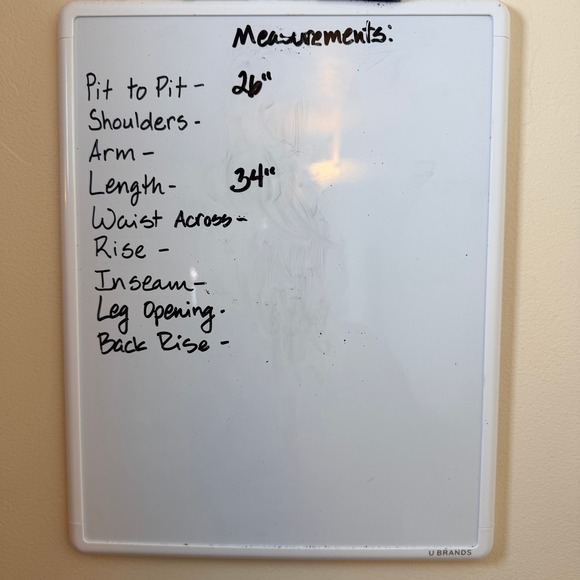 Measurements:
Pit to Pit - 26"
Shoulders -
Arm -
Length - 34"
Waist Across -
Rise -
Inseam -
Leg Opening -
Back Rise -
U BRANDS